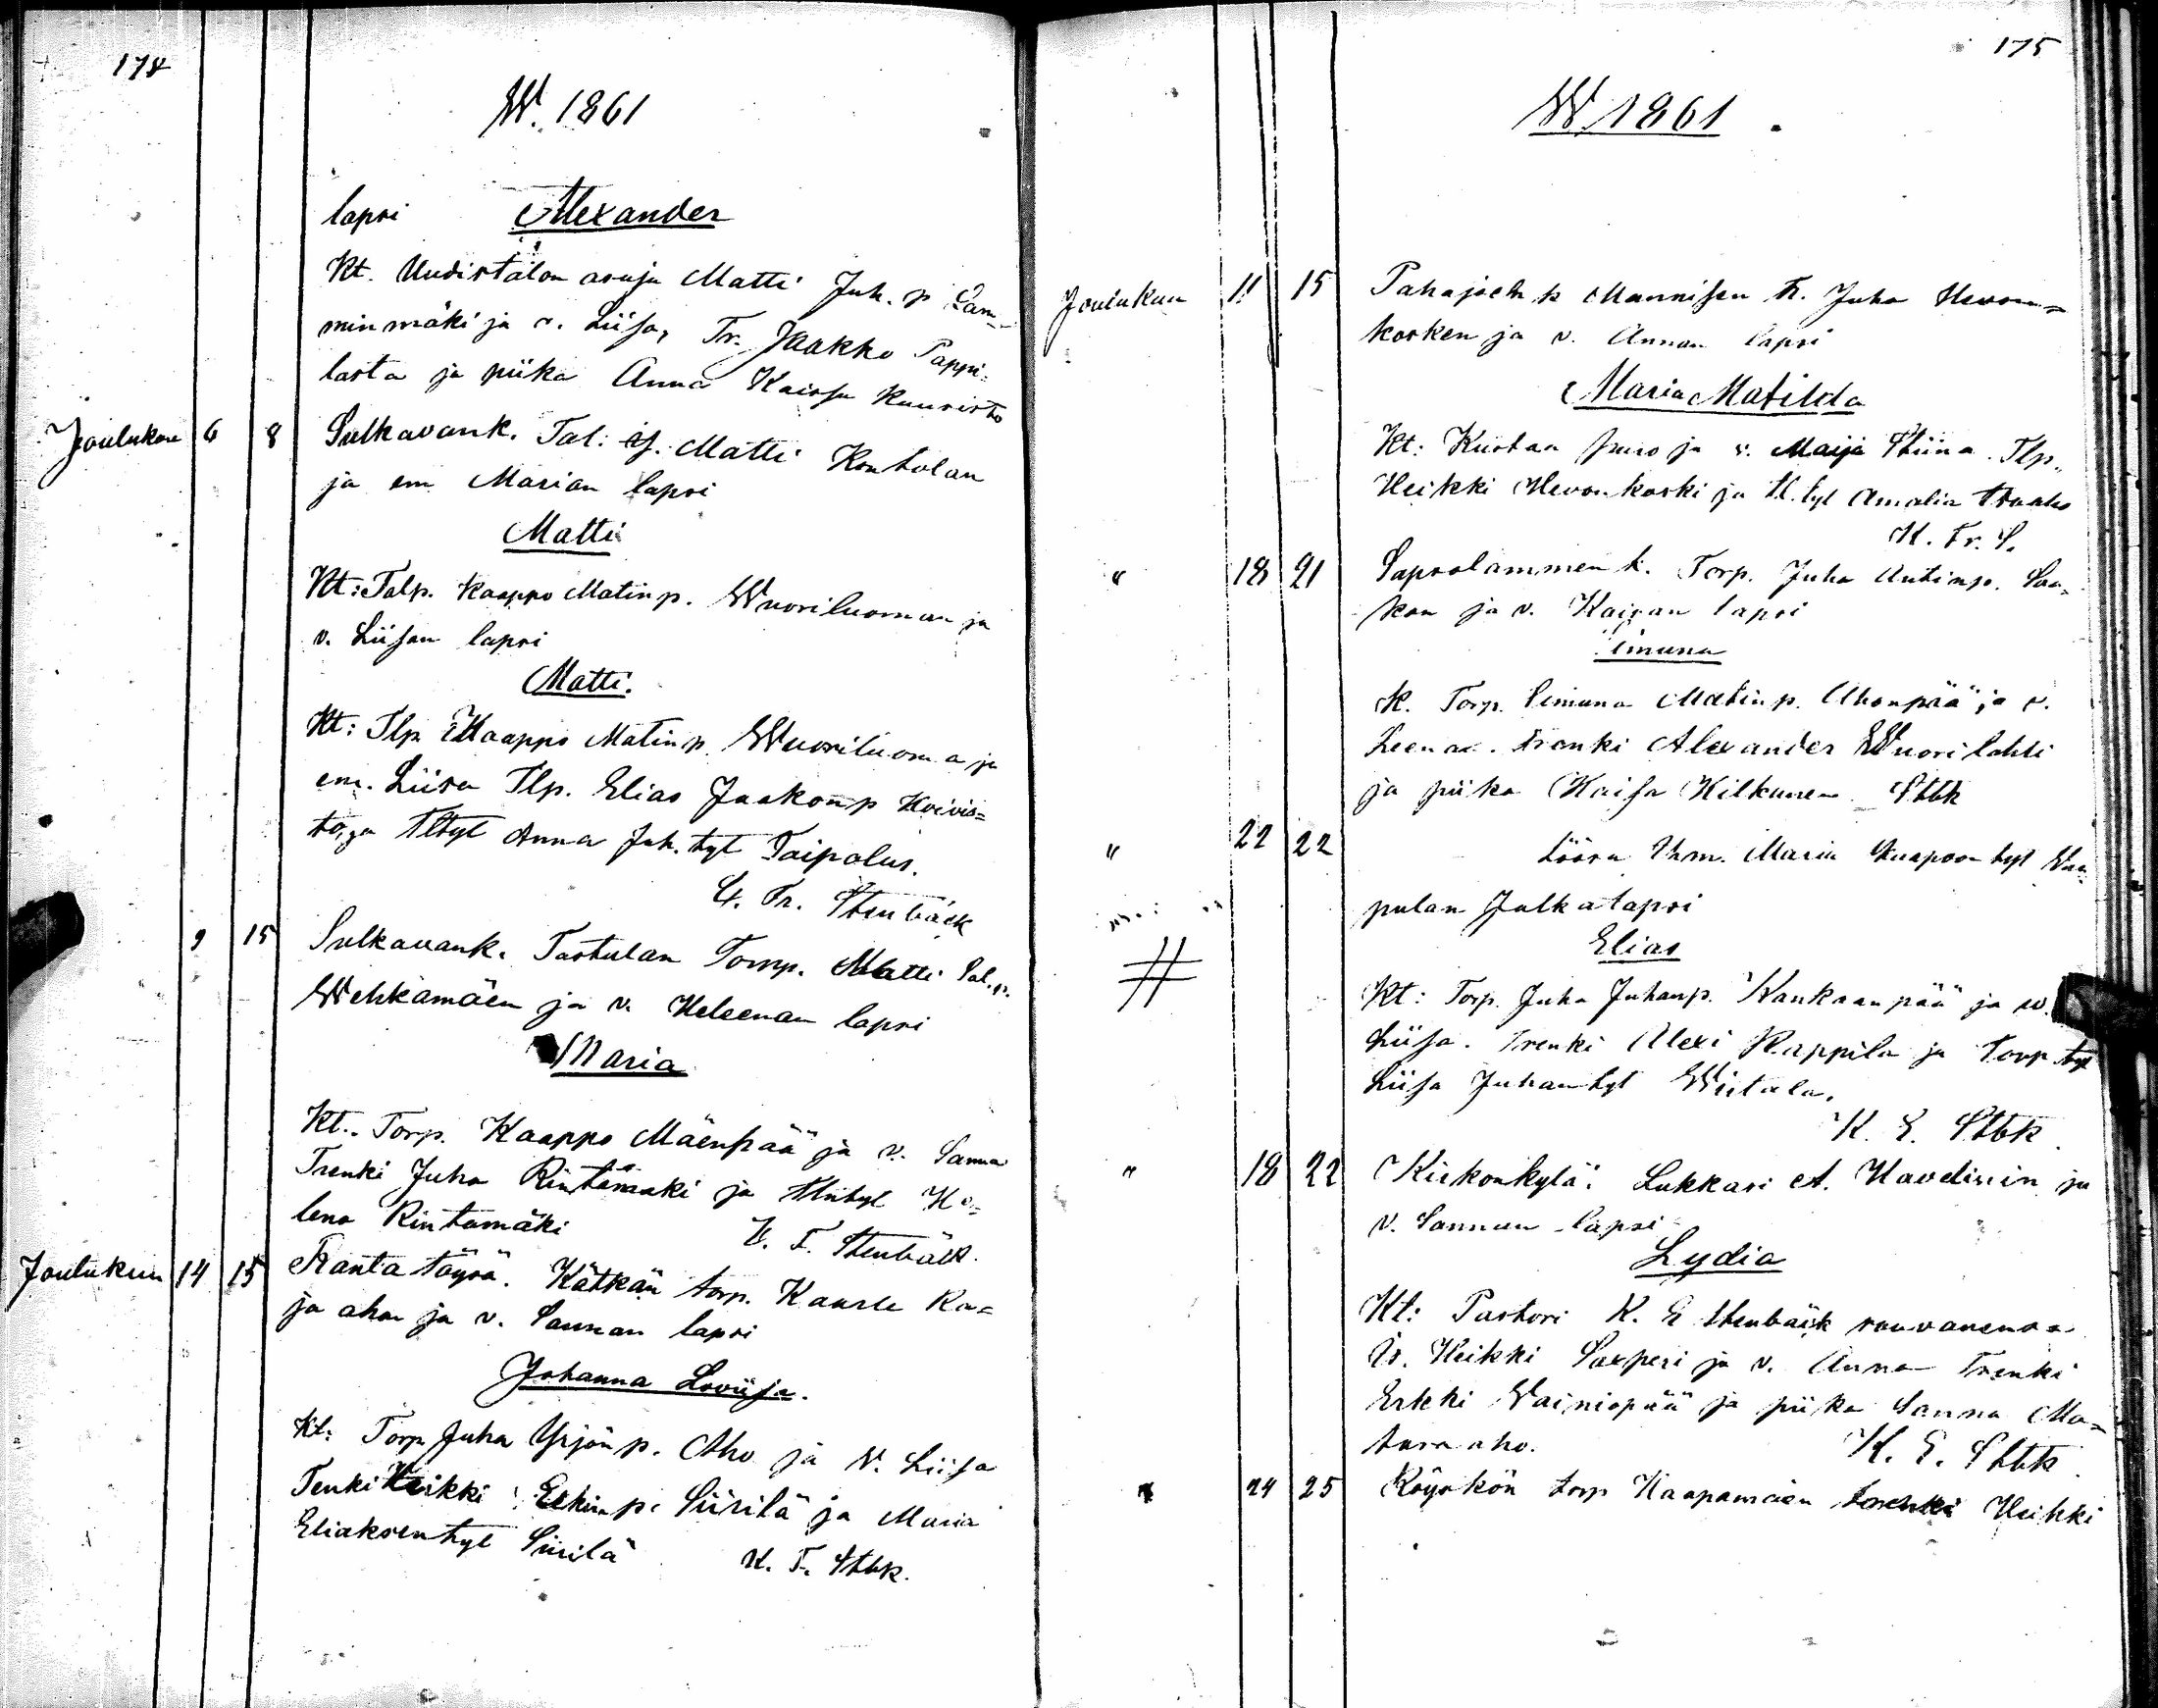 174
W. 1861
lapsi Alexander
Kt. Uudistalon asuja Matti Juh. p Lam-
minmäki ja v. Liisa, Tr. Jaakko Pappi-
lasta ja piika Anna Kaisa Kuusisto
Joulukuu 6 8 Sulkavank. Tal. is. Matti Kontolan
ja em Marian lapsi
Matti
Kt: Talp. Kaappo Matinp. Wuoriluoman ja
v. Liisan lapsi
Matti.
Kt: Tlp Kaappo Matinp. Wuoriluoma ja
em. Liisa Tlp. Elias Jaakonp Koivis=
to, ja Tltyt Anna Juh. tyt Taipalus.
Fr. Stenbäck
9 15 Sulkavank. Tastulan Torp. Matti Sal. p.
Wehkamäen ja v. Heleenan lapsi
Maria
Kt. Torp. Kaappo Mäenpää ja v. Sanna
Trenki Juha Rintamäki ja He=
lena Rintamäki
K. F. Stenbäck.
Joulukuu 14 15 Ranta töysä. Kätkän torp. Kaarle Ra=
ja ahon ja v. Sannan lapsi
Johanna Loviisa.
Kt: Torp Juha Yrjön p. Aho ja v. Liisa
Tenki Heikki Erkin p. Siirilä ja Maria
Eliaksentyt Siirilä
K. F. Stbk.
175
W 1861
Joulukuu 11 15 Pahajoen k Mannisen tr. Juha Hevon=
kosken ja v. Annan lapsi
Maria Matilda
Kt: Kustaa ja v. Maija Stiina. Tlp.
Heikki Hevonkoski ja tl. tyt Amalia
K. Fr. S.
" 18 21 Sapsolammen k. Torp. Juha Antinp. Saa=
kon ja v. Kaisan lapsi
Simuna
K. Torp. Simuna Matinp. Ahonpää ja v.
Leena. Trenki Alexander Wuorilahti
ja piika Kaisa Kilkunen Stbk
" 22 22 Löösa Ihm. Maria Kaapoon tyt
pulan Julkalapsi
Elias
# Kt: Torp. Juha Juhanp. Kankaanpää ja w.
Liisa. Trenki Alexi Rappila ja Torp tyt
Liisa Juhantyt Wiitala.
K. E. Stbk
" 18 22 Kirkonkylä: Lukkari A. Havelinin ja
v. Sannan lapsi
Lydia
Kt: Pastori K. E Stenbäck rouvanensa
Is. Heikki Saxperi ja v. Anna Trenki
Erkki Wainiopää ja piika Sanna Ma=
tara aho.
K. E. Stbk
" 24 25 Röyskön torp Haapamäen trenki Heikki